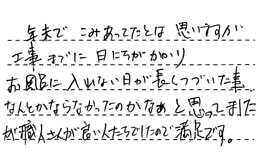 年末で こみあってたとは 思いますが
工事までに 日にちがかかり
お風呂に 入れない日が長くつづいた事
なんとかならなかったのかなぁと思ってました
が職人さんが良い人たちでしたので満足です。